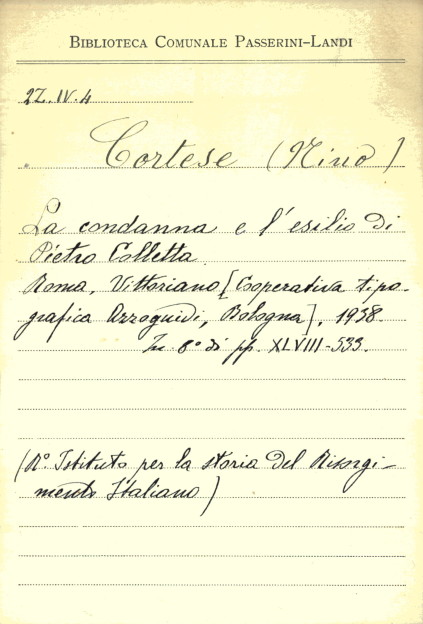 BIBLIOTECA COMUNALE PASSERINI-LANDI
2Z.IV.4
Cortese (Nino)
La condanna e l'esilio di
Pietro Colletta.
Roma, Vittoriano [Cooperativa tipo-
grafica Azzoguidi, Bologna], 1938.
In 8° di pp. XLVIII-533.
(R°. Istituto per la storia del Risorgi-
mento Italiano)